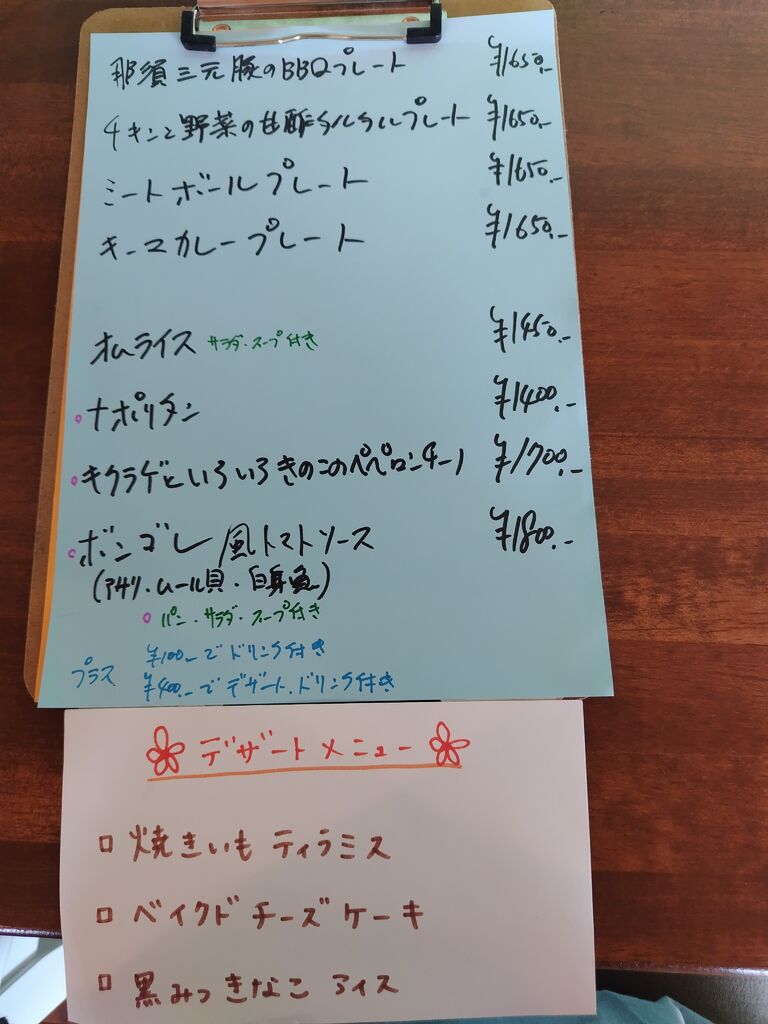 那須三元豚のBBQプレート ¥1650.-
チキンと野菜の甘酢タルタルプレート ¥1650.-
ミートボールプレート ¥1650.-
キーマカレープレート ¥1650.-
オムライス サラダ・スープ付き ¥1450.-
○ナポリタン ¥1400.-
○キクラゲといろいろきのこのペペロンチーノ ¥1700.-
○ボンゴレ風トマトソース ¥1800.-
(アサリ・ムール貝・白身魚)
○パン・サラダ・スープ付き
プラス ¥100-でドリンク付き
¥400.-でデザート・ドリンク付き
デザートメニュー
□ 焼きいも ティラミス
□ ベイクドチーズケーキ
□ 黒みつきなこ アイス